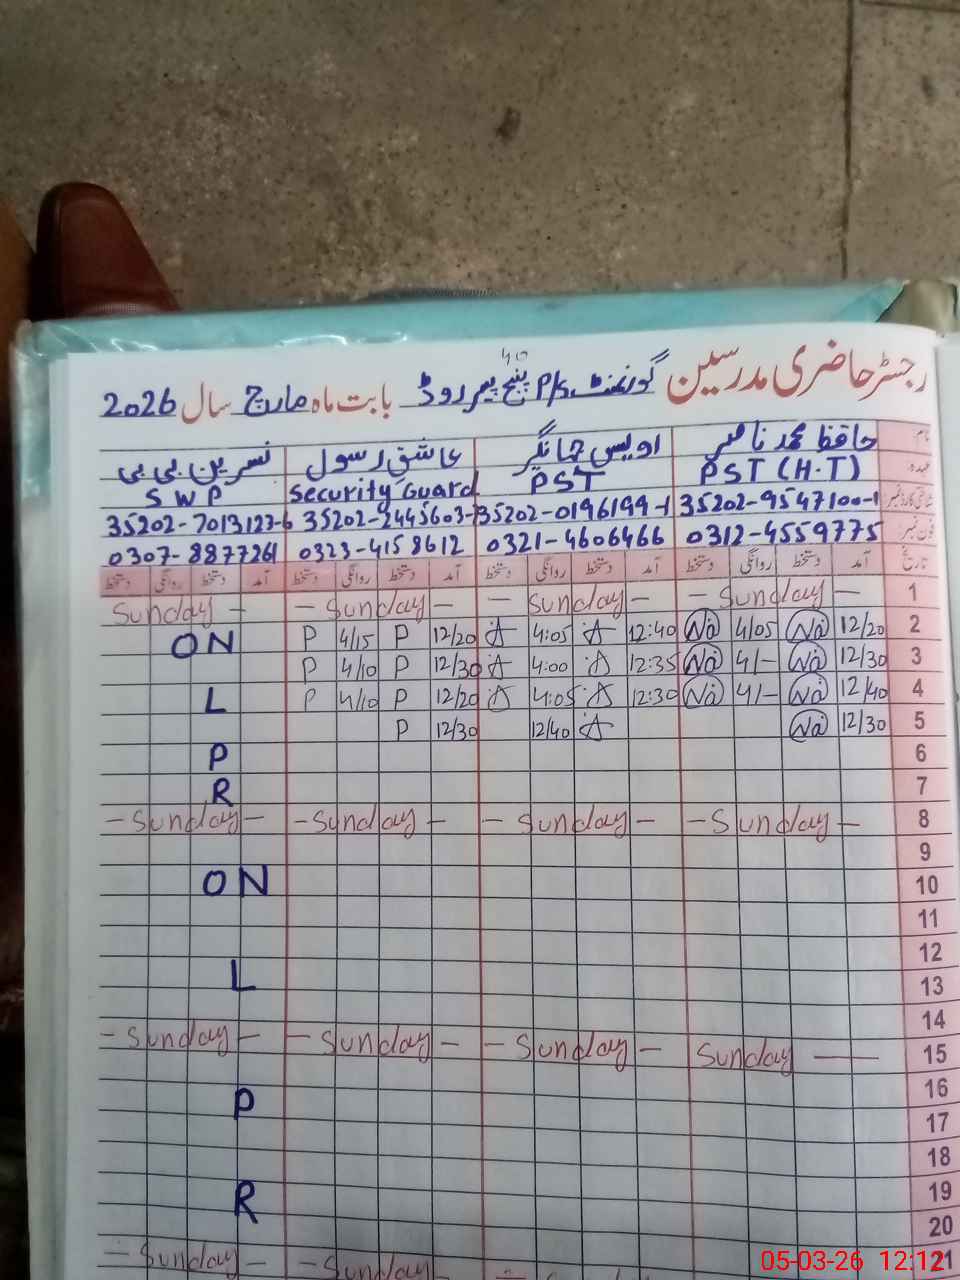 رجسٹر حاضری مدرسین گورنمنٹ P/S پنج پیر روڈ بابت ماہ مارچ سال 2026
نام حافظ محمد ناصر اویس جہانگیر عاشق رسول نسرین بی بی
عہدہ PST (H.T) PST Security Guard SWP
35202-9547100-1 35202-0196199-1 35202-2445603-7 35202-7013127-6
فون نمبر 0312-4559775 0321-4606466 0323-4158612 0307-8877261
تاریخ آمد دستخط روانگی دستخط آمد دستخط روانگی دستخط آمد دستخط روانگی دستخط آمد دستخط روانگی دستخط
1 - Sunday - - Sunday - - Sunday - Sunday -
2 12/20 4/05 12:40 4:05 12/20 P 4/15 P ON
3 12/30 4/- 12:35 4:00 12/30 P 4/10 P
4 12/40 4/- 12:30 4:05 12/20 P 4/10 P L
5 12/30 12/40 12/30 P
6 P
7 R
8 - Sunday - - Sunday - - Sunday - - Sunday -
9
10 ON
11
12
13 L
14
15 Sunday - - Sunday - - Sunday - - Sunday -
16
17 P
18
19
20 R
21 - Sunday - - Sunday
05-03-26 12:12